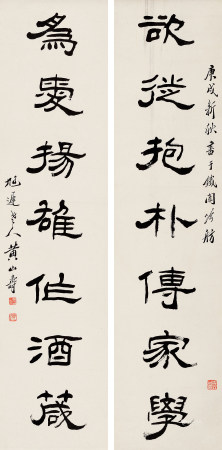 庚戌新秋書于
欲從抱朴傳家學
為愛揚雄作酒箴
旭遲老人黃山壽